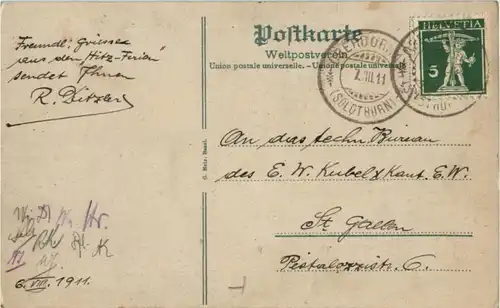 Postkarte
Weltpostverein
Union postale universelle. — Unione postale universale
Freundl. Grüsse
aus den "Hitz-Ferien"
sendet Ihnen
R. Ditzler
6. VIII. 1911.
G. Metz, Basel.
HELVETIA
5
7. VIII. 11
(SOLOTHURN)
An das techn. Bureau
des E. W. Kubel & Kant. E. W.
St. Gallen
Pestalozzistr. 6.